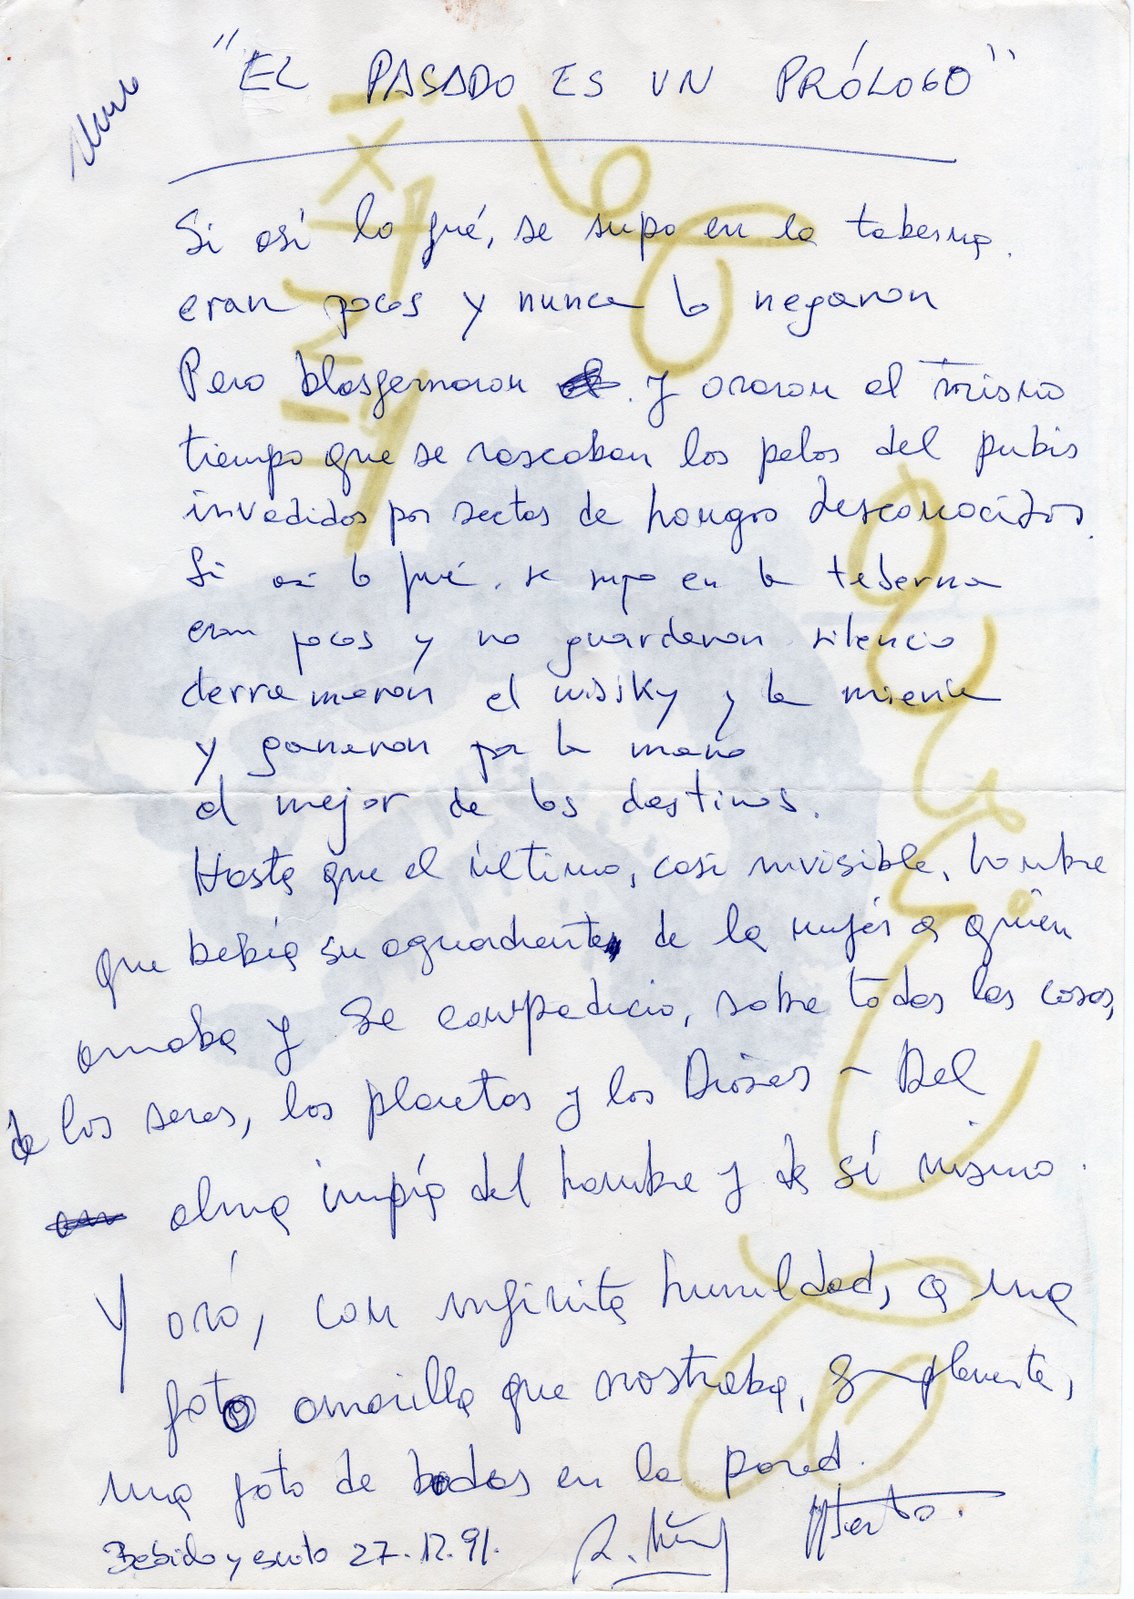 "EL PASADO ES UN PRÓLOGO"
Si así lo fué, se supo en la taberna.
eran pocos y nunca lo negaron
Pero blasfemaron y oraron al mismo
tiempo que se rascaban los pelos del pubis
invadidos por sectas de hongos desconocidos.
Si así lo fué, se supo en la taberna
eran pocos y no guardaron silencio
derramaron el wisiky y la
y ganaron por la mano
al mejor de los destinos.
Hasta que el último, casi invisible, hombre
que bebía su aguardiente, de la mujer a quién
amaba y se compadecio, sobre todas las cosas,
de los seres, los planetas y los Dioses - Del
alma impía del hombre y de sí mismo.
Y oró, con infinita humildad, a una
foto amarilla que mostraba, simplemente,
una foto de bodas en la pared.
Bebido y escrito 27.12.91.